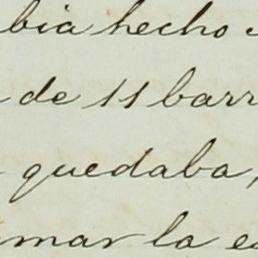 bia hecho
de 11 barr
quedaba,
mar la e